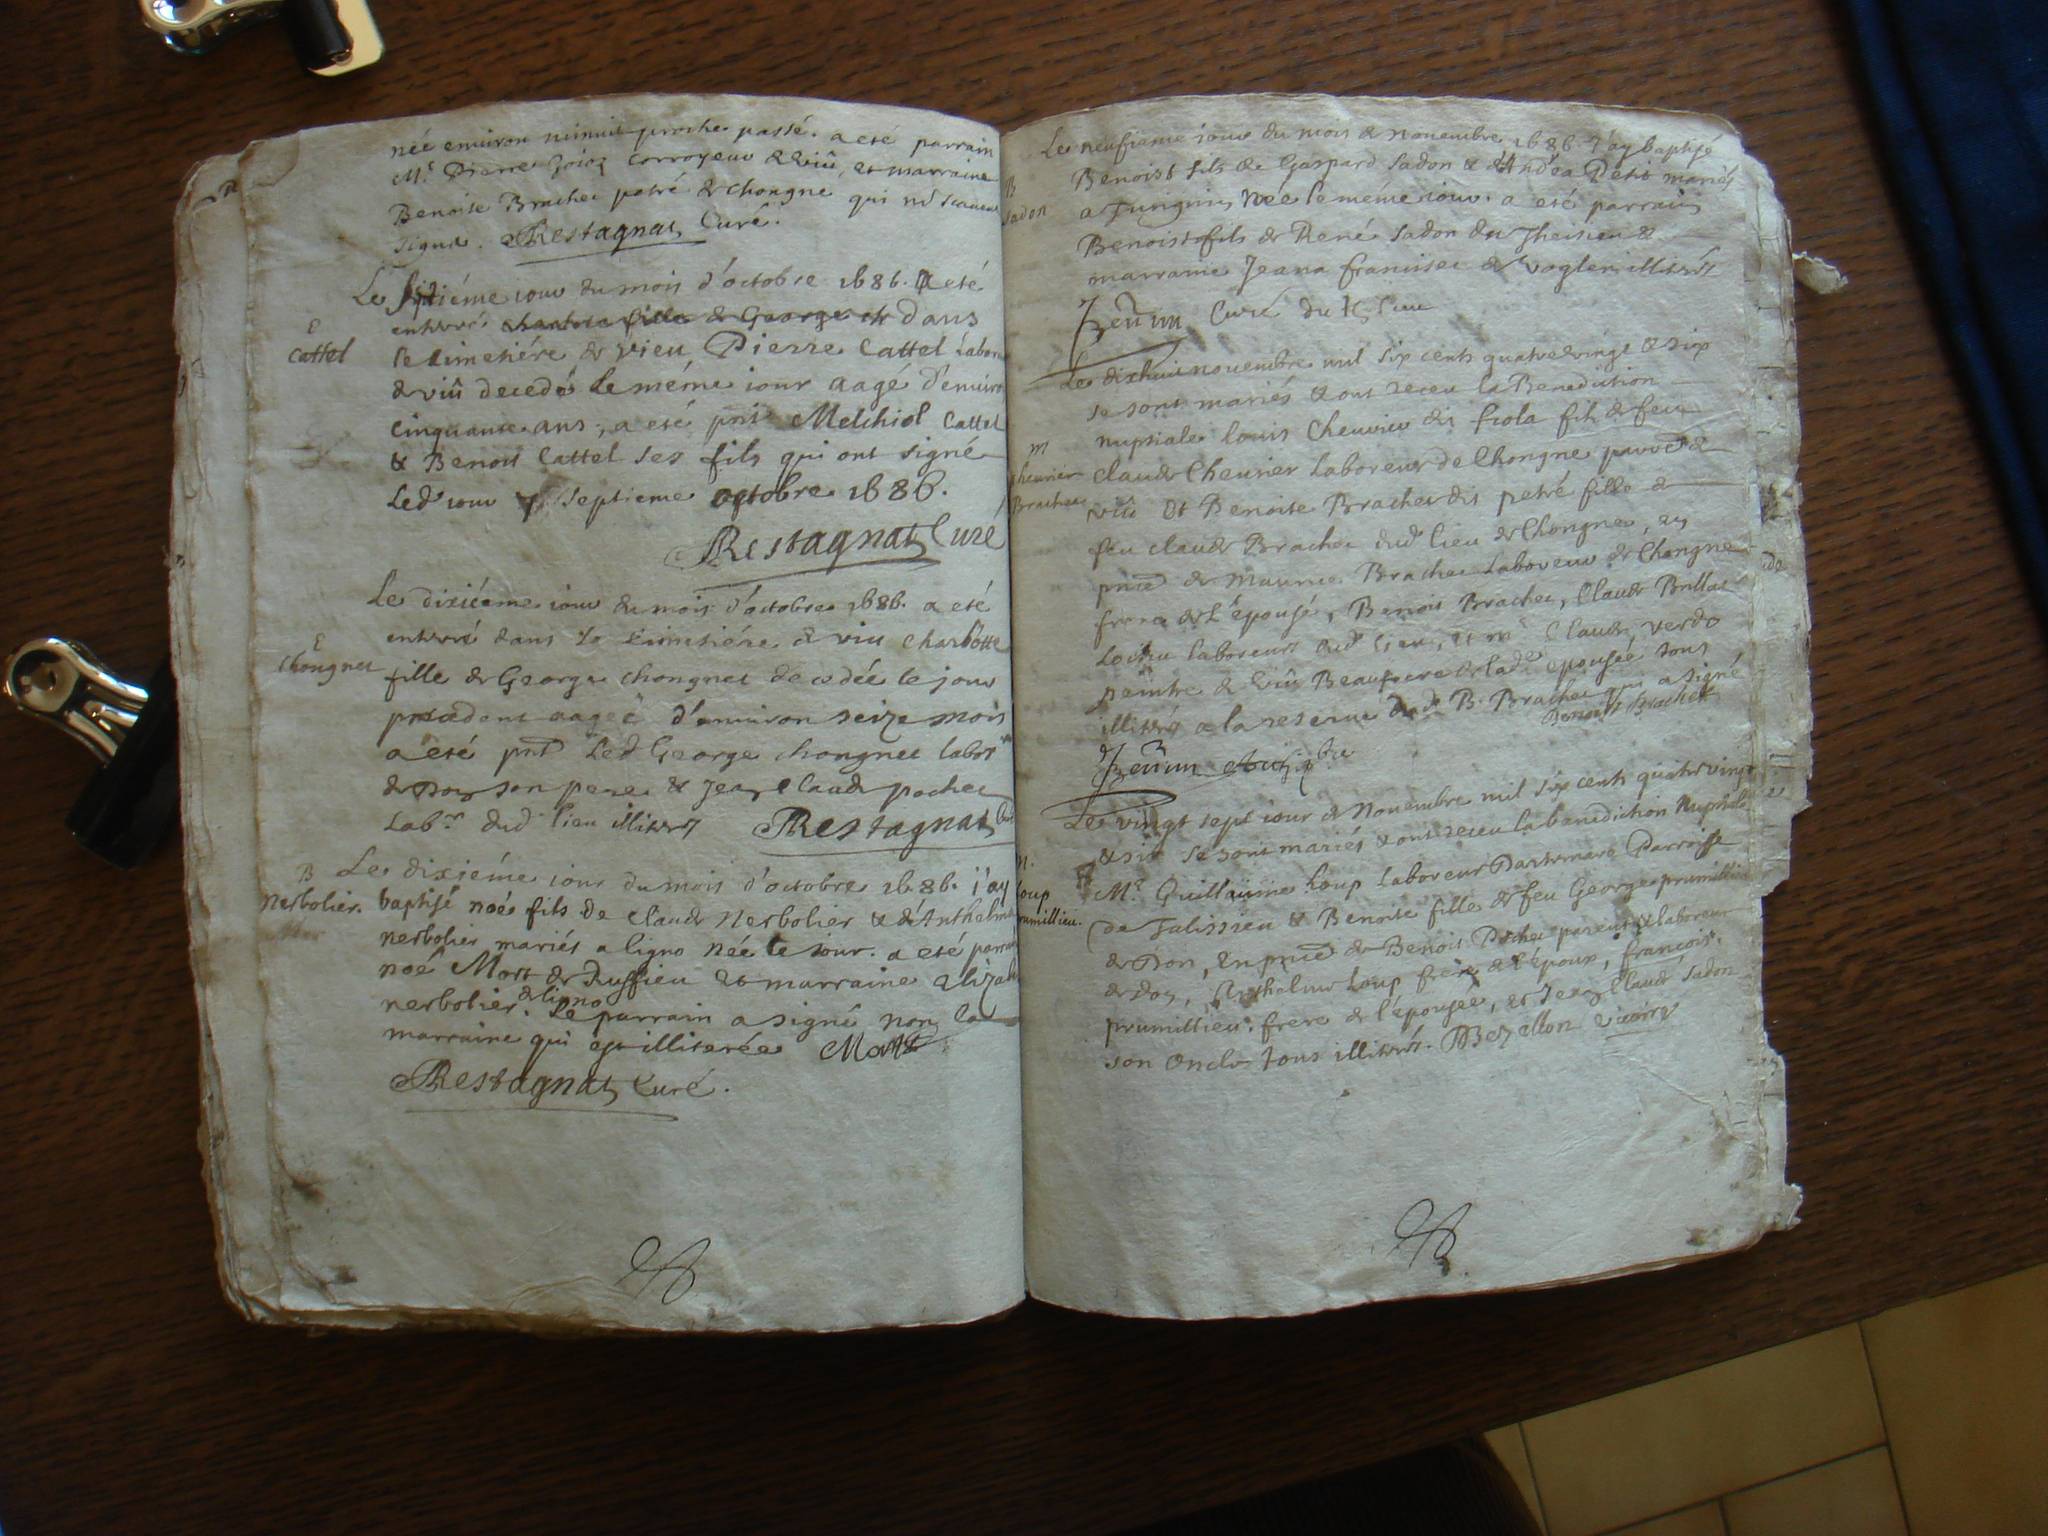 née environ minuit proche passé. a eté parrain
Mr. Pierre corroyeur de viû, et marraine
Benoite Brachet petré de Chongne qui n'
signé. Restagnat Curé.
Le septiéme iour du mois d'octobre 1686. a eté
E
Cattel
enterré charlote fille de George ch dans
le cimetiére de vieu Pierre Cattel labou
de viû decedé le méme iour aagé d'enuiro
cinquante ans, a eté pnt Melchiol Cattel
& Benoit Cattel ses fils qui ont signé
led iour 7 septieme octobre 1686.
Restagnat Curé
Le dixiéeme iour du mois d'octobre 1686. a eté
E
Chongnet
enterré dans le cimetiére de viu Charlotte
fille de George chongnet decedée le jour
precedent aageé d'enuiron seize mois
a eté pnt led George chongnet labor
de Don son pere & Jean Claude pochet
Labr. dud lieu illitérés Restagnat Curé
B
Nerbolier.
Le dixiéme iour du mois d'octobre 1686. i'ay
baptisé noé fils de Claude Nerbolier & d'Anthelme
nerbolier mariés a ligno Née le iour. a eté parra
noé Mort de Ruffieu et marraine elizab
nerbolier de ligno. Le parrain a signé non la
marraine qui est illiterée Mort
Restagnat Curé.
Le neufieme iour du mois de novembre 1686 J'ay baptisé
B
Sadon
Benoist fils de Gaspard Sadon & d'Andréa Petit mariés
a Née le méme iour. a eté parrain
Benoist fils de René Sadon du &
marraine Jeana francisee de Voglen illitérés
Curé du
Le dixhuit novembre mil six cents quatre vingt & six
se sont mariés & ont receu la Benediction
nuptiale louis Cheurier dit fiola fils de feu
M
Cheurier
Brachet
Claude Cheurier Laboreur de Chongne parroesse de
viû Et Benoite Brachet dit petré fille de
feu claude Brachet dud lieu de Chongne, en
pnce de Maurice Brachet Laboreur de Chongne
frere de l'épousé, Benoit Brachet, Claude Brillat
laboreurs dud lieu, et mr Claude verdo
peintre de viû Beaufrere de lade epousée tous
illitérés a la reserue dud B. Brachet qui a signé
Benoist Brachet
Le vingt sept iour de Novembre mil six cents quatre vingt
& six se sont mariés & ont receu la benediction Nuptiale
M.
Loup
rumillieu.
Mr. Guillaume Loup Laboreur Parroisse
de Talissieu & Benoite fille de feu George prumillieu
de Don, en pnce de Benoit Pochet parent & laboreur
de Don, Anthelme Loup frere de l'époux, francois
prumillieu frere de l'épousée, et Jean Claude Sadon
son oncle tous illitérés. Bezellon vicaire